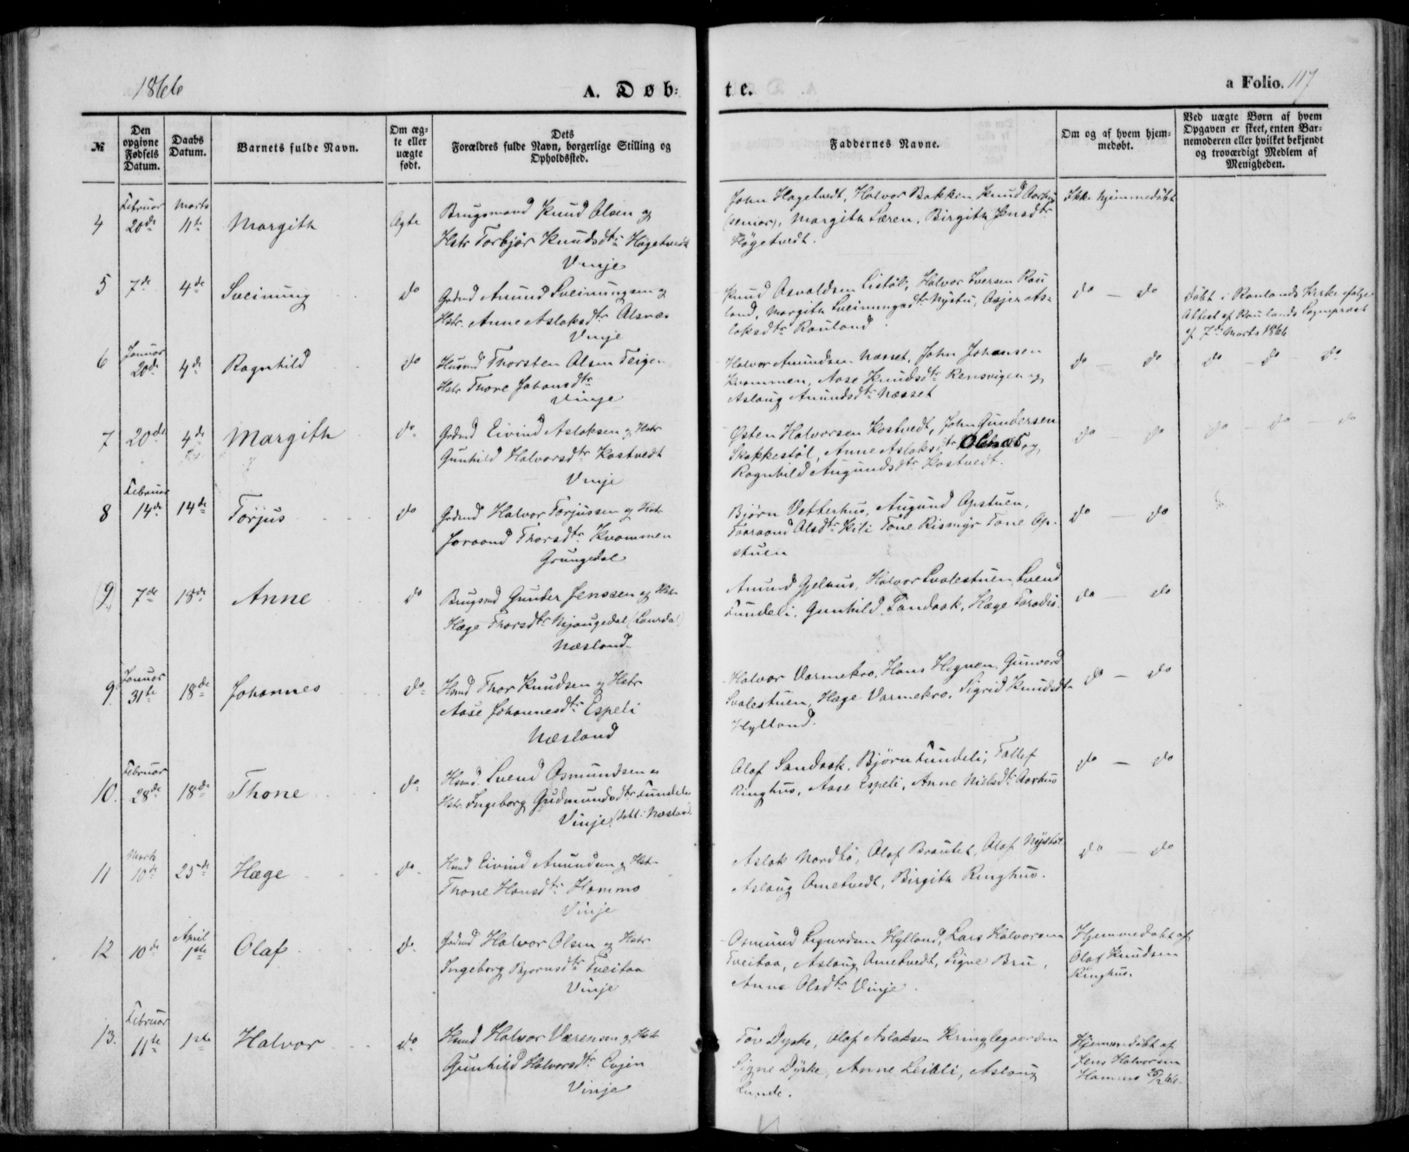 1866
A. Døb-
te.
a Folio. 117
№
Den opgivne Fødsels Datum.
Daabs Datum.
Barnets fulde Navn.
Om ægte eller uægte født.
Dets
Forældres fulde Navn, borgerlige Stilling og
Opholdssted.
Faddernes Navne.
Om og af hvem hjemmedøbt.
Ved uægte Børn af hvem
Opgaven er skeet, enten Barnemoderen eller hvilket bekjendt
og troværdigt Medlem af
Menigheden.
4
Februar
20de
Marts
11te
Margith
Ægte
Brugsmand Knud Olsen og
Hstr Torbjør Knudsdtr Høgetvedt
Vinje
John Høgetvedt, Halvor Bakken, Knud
(senior), Margith Særen, Birgith
Høgetvedt.
Ikke hjemmedøbt
5
7de
4de
Sveinung
do
Gaardmd Amund Sveinungsen og
Hstr. Anne Aslaksdtr
Vinje
Knud Osvaldsen Listøl, Halvor Iversen Rau
land, Margith Sveinungsdtr Nystu, Asjer As-
laksdtr Rauland
do — do
Døbt i Raulands Kirke ifølge
Attest af Raulands Sognepræst
af 7de Marts 1866
6
Januar
20de
4de
Ragnhild
do
Husmd Thorsten Olsen Teigen
Hstr Thore Johansdtr
Vinje
Halvor Amundsen Næsset, John Johansen
Kvammen, Aase Knudsdtr Rensvigen og
Aslaug Amundsdtr Næsset
do — do
do — do do
7
20de
4de
Margith
do
Gaardmd Eivind Aslaksen og Hstr
Gunhild Halvorsdtr Kostvedt
Vinje
Østen Halvorsen Kostvedt, John Gundersen
Anne Aslaksdtr og
Ragnhild Augundsdtr Kostvedt.
do — do
do — do do
8
Februar
14de
14de
Torjus
do
Gaardmd Halvor Torjussen og Hstr
Joraand Thorsdtr Kvammen
Grungedal
Bjørn Vetterhus, Augund Opstuen,
Taaraand Olsdtr Kili Tone Rismyr Tone Op-
stuen
do — do
9
7de
18de
Anne
do
Brugsmd Gunder Jenssen og Hstr
Hæge Thorsdtr Mjaugedal (Laurdal)
Næsland
Amund Gjelhus, Halvor Svalestuen Svend
Lundeli, Gunhild Sandaak, Hæge
do — do
9
Januar
31te
18de
Johannes
do
Husmd Thor Knudsen og Hstr
Aase Johannesdtr Espeli
Næsland
Halvor Varmekro, Hans Gunvord
Svalestuen, Hæge Varmekro, Sigrid Knudsdtr
Hylland.
do — do
10.
Februar
28de
18de
Thone
do
Husmd. Svend Osmundsen og
Hstr Ingeborg Gudmundsdtr Lundeli
Vinje
Olaf Sandaak, Bjørn Lundeli, Tallef
Ringhus, Aase Espeli, Anne Nielsdtr
do — do
11
Marts
10de
25de
Hæge
do
Husmd Eivind Amundsen og Hstr
Thone Hansdtr Hommo
Vinje
Aslak Nordbø, Olaf Olaf
Aslaug Ometvedt, Birgith Ringhus.
do — do
12
10de
April
1ste
Olaf
do
Gaardmd Halvor Olsen og Hstr
Ingeborg Bjørnsdtr Tveitaa
Vinje
Osmund Sigurdsen Hylland, Lars Halvorsen
Tveitaa, Aslaug Ometvedt, Signe Bru,
Anne Olsdtr Vinje.
Hjemmedøbt af
Olaf Knudsen
Ringhus.
13.
Februar
11te
1ste
Halvor
do
Husmd Halvor Værensen og Hstr
Gunhild Halvorsdtr
Vinje
Tov Dyrke, Olaf Aslaksen Kringlegaarden
Signe Dyrke, Anne Leikli, Aslaug
Lunde.
Hjemmedøbt af
Jens Halvorsen
Hommo